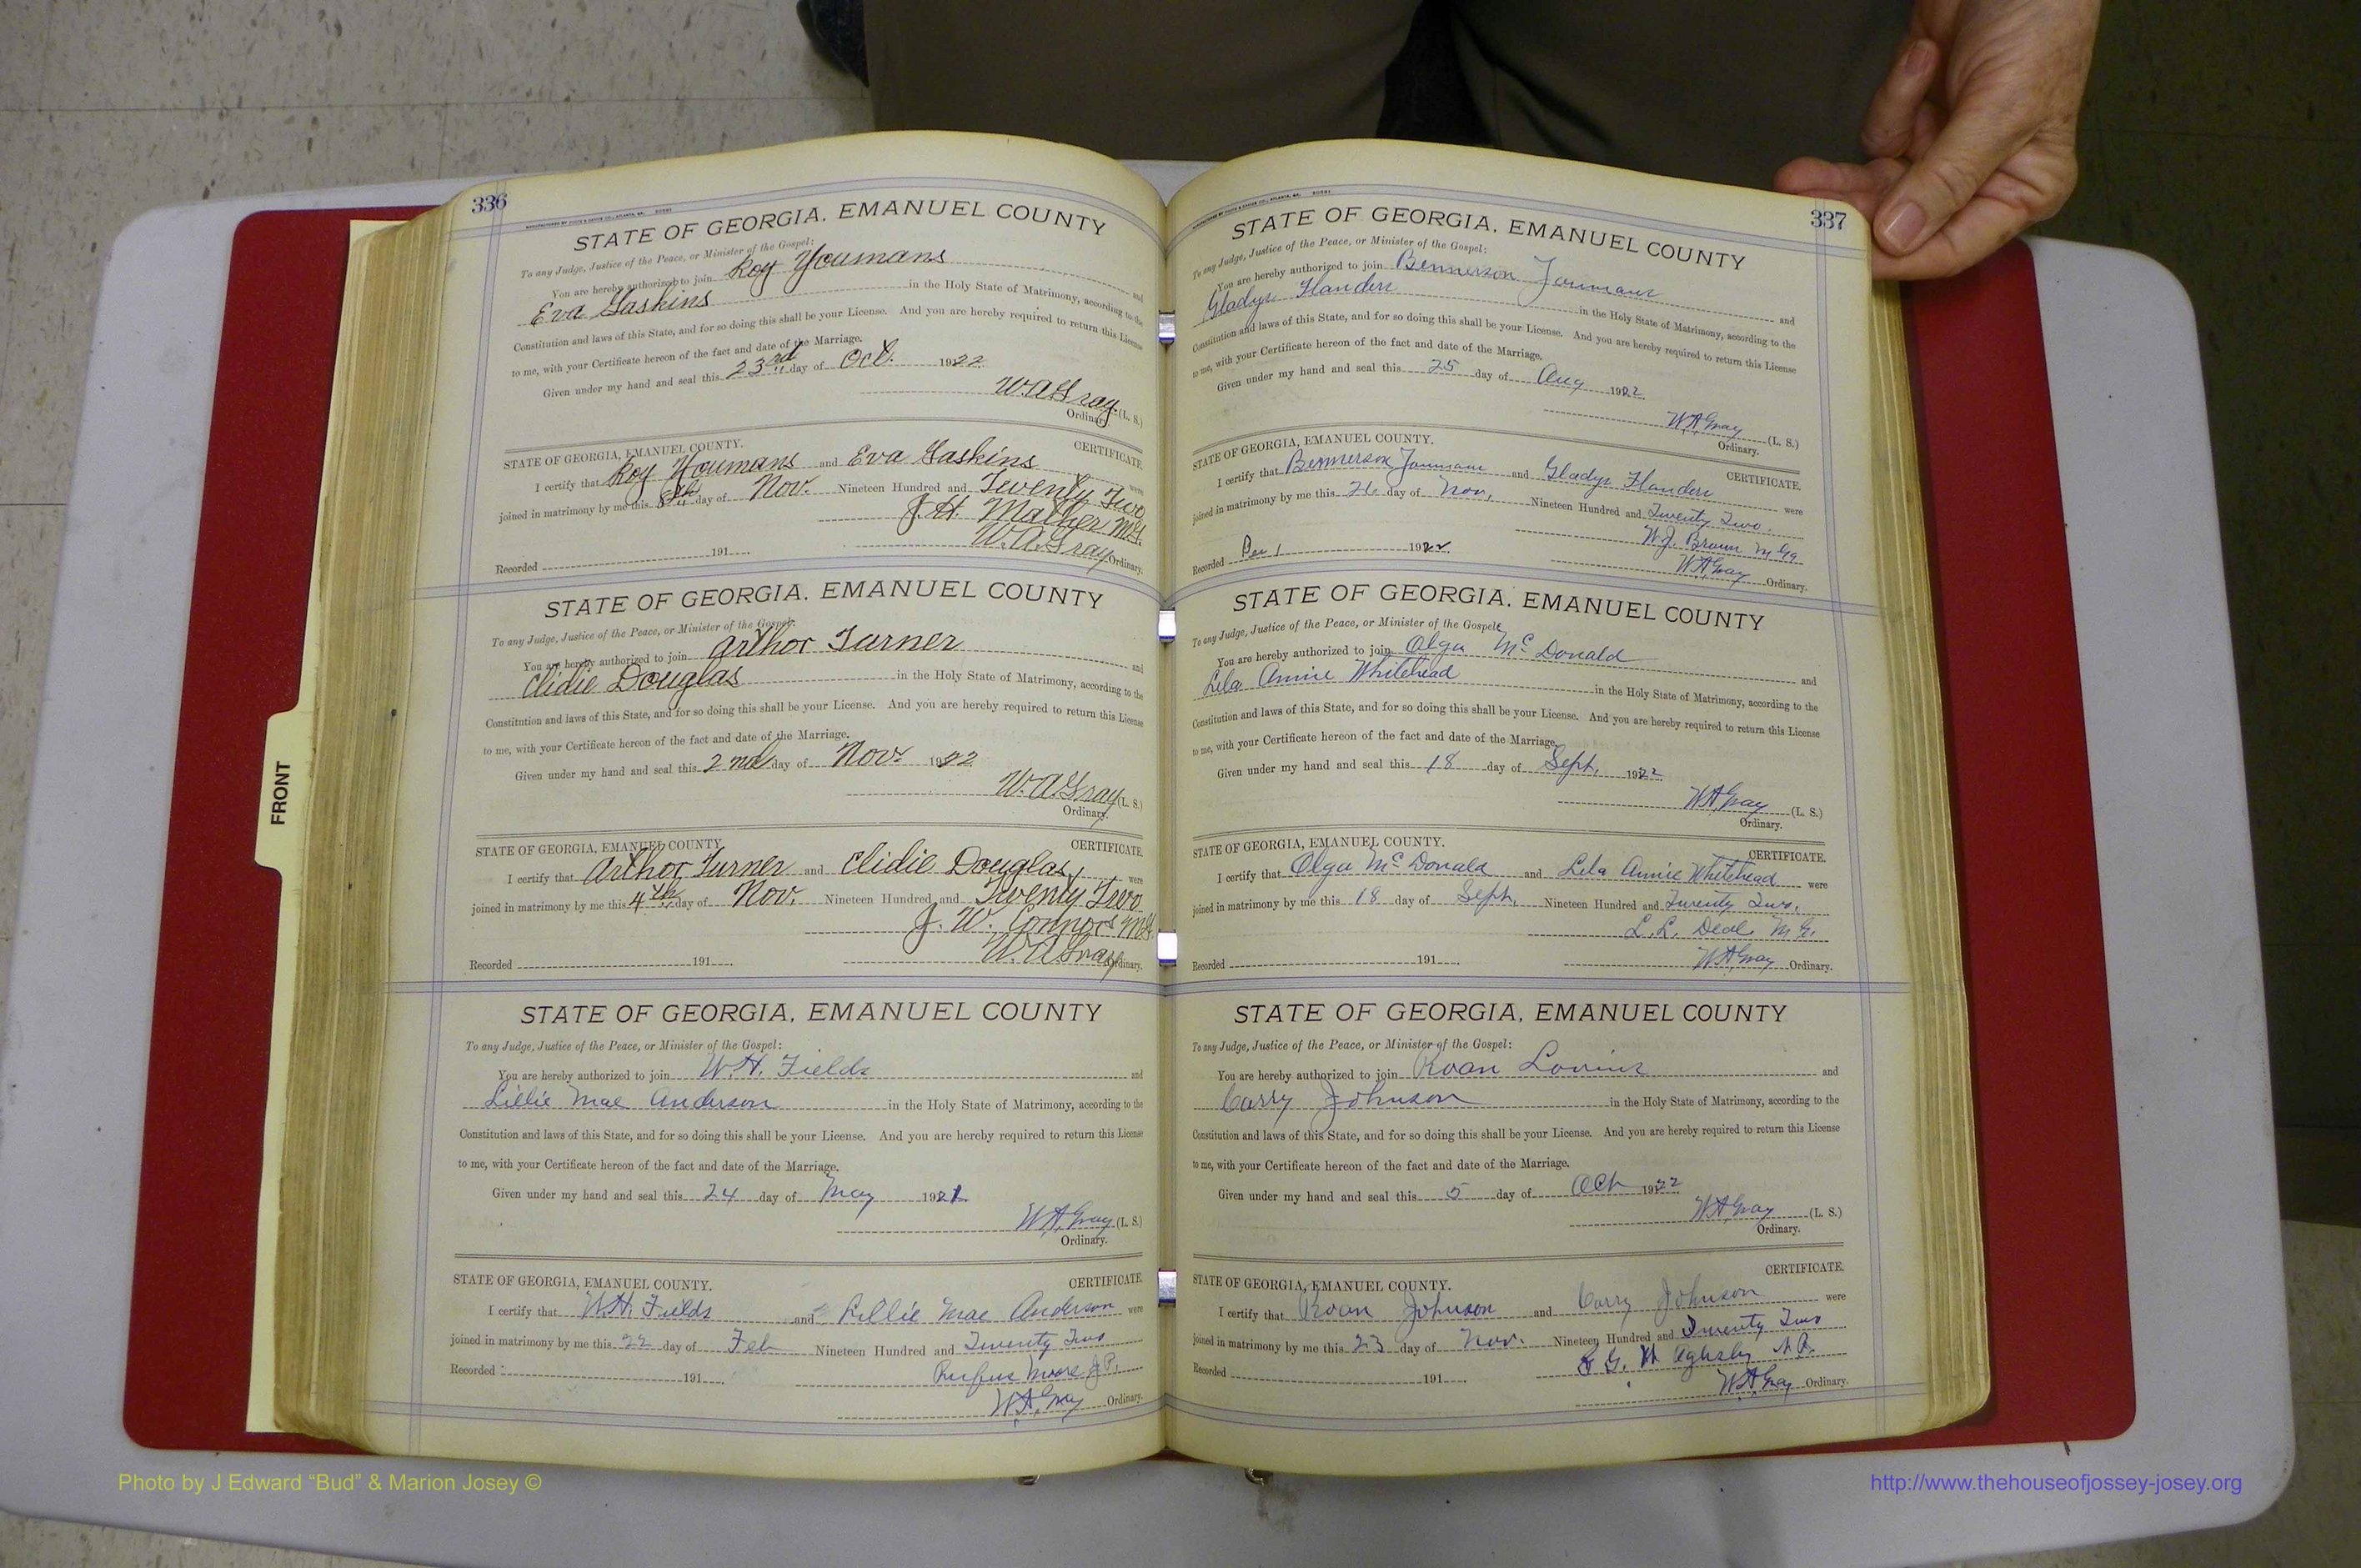 336
STATE OF GEORGIA, EMANUEL COUNTY
To any Judge, Justice of the Peace, or Minister of the Gospel:
You are hereby authorized to join Roy Youmans and
Eva Gaskins in the Holy State of Matrimony, according to the
Constitution and laws of this State, and for so doing this shall be your License. And you are hereby required to return this License
to me, with your Certificate hereon of the fact and date of the Marriage.
Given under my hand and seal this 23rd day of Oct. 1922
W.A. Gray (L. S.)
Ordinary.
STATE OF GEORGIA, EMANUEL COUNTY. CERTIFICATE.
I certify that Roy Youmans and Eva Gaskins were
joined in matrimony by me this 8th day of Nov. Nineteen Hundred and Twenty Two
J. H. Mather M.G.
Recorded 191 W.A. Gray Ordinary.
STATE OF GEORGIA, EMANUEL COUNTY
To any Judge, Justice of the Peace, or Minister of the Gospel:
You are hereby authorized to join Arthor Turner and
Clidie Douglas in the Holy State of Matrimony, according to the
Constitution and laws of this State, and for so doing this shall be your License. And you are hereby required to return this License
to me, with your Certificate hereon of the fact and date of the Marriage.
Given under my hand and seal this 2nd day of Nov. 1922
W.A. Gray (L. S.)
Ordinary.
STATE OF GEORGIA, EMANUEL COUNTY. CERTIFICATE.
I certify that Arthor Turner and Clidie Douglas were
joined in matrimony by me this 4th day of Nov. Nineteen Hundred and Twenty Two
J. W. Connors M.G.
Recorded 191 W.A. Gray Ordinary.
STATE OF GEORGIA, EMANUEL COUNTY
To any Judge, Justice of the Peace, or Minister of the Gospel:
You are hereby authorized to join W. H. Fields and
Lillie Mae Anderson in the Holy State of Matrimony, according to the
Constitution and laws of this State, and for so doing this shall be your License. And you are hereby required to return this License
to me, with your Certificate hereon of the fact and date of the Marriage.
Given under my hand and seal this 24 day of May 1921
W.A. Gray (L. S.)
Ordinary.
STATE OF GEORGIA, EMANUEL COUNTY. CERTIFICATE
I certify that W. H. Fields and Lillie Mae Anderson were
joined in matrimony by me this 22 day of Feb Nineteen Hundred and Twenty Two
Recorded 191 Rufus Moore J.P.
W.A. Gray Ordinary.
337
STATE OF GEORGIA, EMANUEL COUNTY
To any Judge, Justice of the Peace, or Minister of the Gospel:
You are hereby authorized to join Bennerson Youmans and
Gladys Flanders in the Holy State of Matrimony, according to the
Constitution and laws of this State, and for so doing this shall be your License. And you are hereby required to return this License
to me, with your Certificate hereon of the fact and date of the Marriage.
Given under my hand and seal this 25 day of Aug 1922
W.A. Gray (L. S.)
Ordinary.
STATE OF GEORGIA, EMANUEL COUNTY. CERTIFICATE.
I certify that Bennerson Youmans and Gladys Flanders were
joined in matrimony by me this 26 day of Nov. Nineteen Hundred and Twenty Two.
W. J. Brown
Recorded Dec 1 1922 W.A. Gray Ordinary.
STATE OF GEORGIA, EMANUEL COUNTY
To any Judge, Justice of the Peace, or Minister of the Gospel:
You are hereby authorized to join Olga McDonald and
Lila Annie Whitehead in the Holy State of Matrimony, according to the
Constitution and laws of this State, and for so doing this shall be your License. And you are hereby required to return this License
to me, with your Certificate hereon of the fact and date of the Marriage.
Given under my hand and seal this 18 day of Sept. 1922
W.A. Gray (L. S.)
Ordinary.
STATE OF GEORGIA, EMANUEL COUNTY. CERTIFICATE.
I certify that Olga McDonald and Lila Annie Whitehead were
joined in matrimony by me this 18 day of Sept. Nineteen Hundred and Twenty Two.
L. L. Deal M.G.
Recorded 191 W.A. Gray Ordinary.
STATE OF GEORGIA, EMANUEL COUNTY
To any Judge, Justice of the Peace, or Minister of the Gospel:
You are hereby authorized to join Roan and
Carry Johnson in the Holy State of Matrimony, according to the
Constitution and laws of this State, and for so doing this shall be your License. And you are hereby required to return this License
to me, with your Certificate hereon of the fact and date of the Marriage.
Given under my hand and seal this 5 day of Oct 1922
W.A. Gray (L. S.)
Ordinary.
STATE OF GEORGIA, EMANUEL COUNTY. CERTIFICATE.
I certify that Roan Johnson and Carry Johnson were
joined in matrimony by me this 23 day of Nov. Nineteen Hundred and Twenty Two
Recorded 191
W.A. Gray Ordinary.
FRONT
Photo by J Edward “Bud” & Marion Josey ©
http://www.thehouseofjossey-josey.org